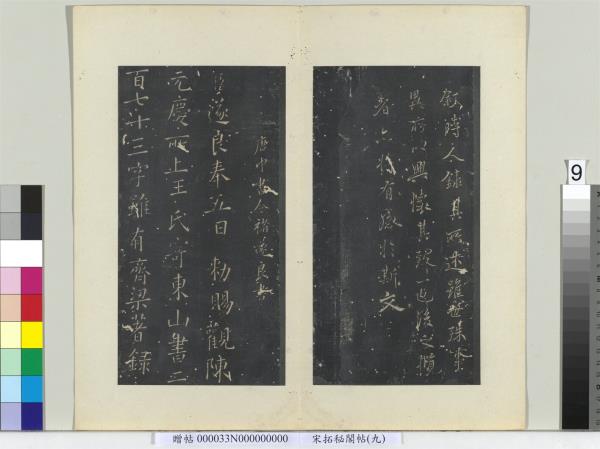 叙時人錄其所述雖世殊事
異所以興懷其致一也後之攬
者亦將有感於斯文
唐中書令褚遂良書
臣遂良奉五日勅賜觀陳
元慶所上王氏寄東山書二
百七十三字雖有齊梁著錄
9
贈帖 000033N000000000 宋拓秘閣帖(九)